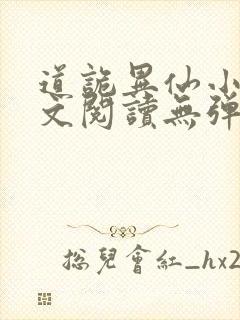 道詭異仙小
文閱讀無彈
總兒會紅_hx2